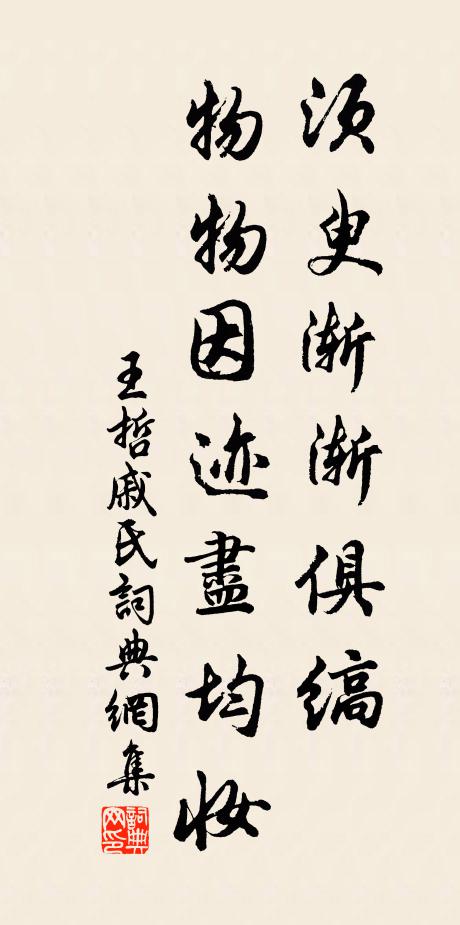 須臾漸漸俱縞
物物因迹盡均妝
王哲戚氏詞典網集
詞典网印